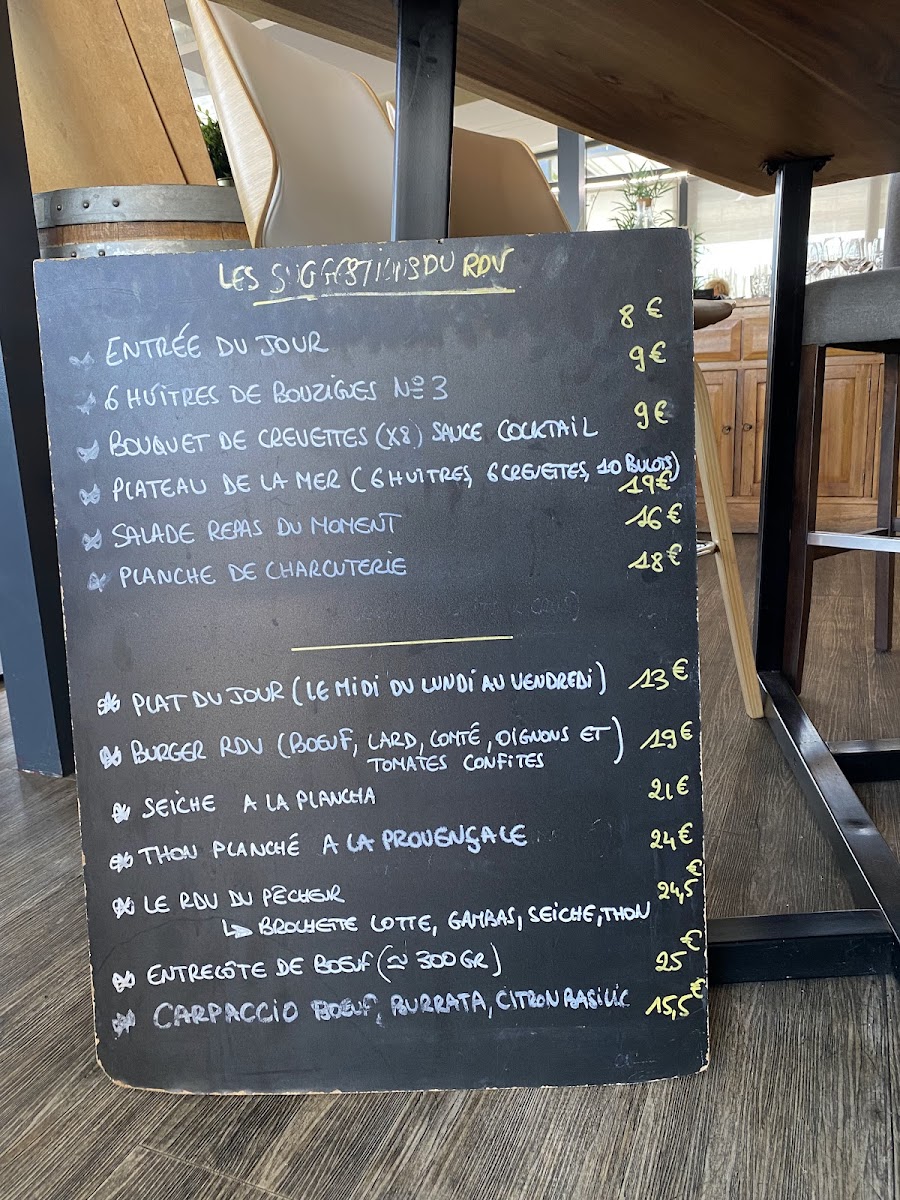 LES SUGGESTIONS DU RDV
ENTRÉE DU JOUR 8€
6 HUÎTRES DE BOUZIGUES Nº3 9€
BOUQUET DE CREVETTES (X8) SAUCE COCKTAIL 9€
PLATEAU DE LA MER (6 HUÎTRES, 6 CREVETTES, 10 BULOTS)
19€
SALADE REPAS DU MOMENT 16€
PLANCHE DE CHARCUTERIE 18€
PLAT DU JOUR (LE MIDI DU LUNDI AU VENDREDI) 13€
BURGER RDV (BOEUF, LARD, COMTÉ, OIGNONS ET 19€
TOMATES CONFITES)
SEICHE A LA PLANCHA 21€
THON PLANCHÉ A LA PROVENÇALE 24€
LE RDV DU PÊCHEUR 24,5€
↳ BROCHETTE LOTTE, GAMBAS, SEICHE, THON
ENTRECÔTE DE BOEUF (≃ 300GR) 25€
CARPACCIO BOEUF, BURRATA, CITRON BASILIC 15,5€